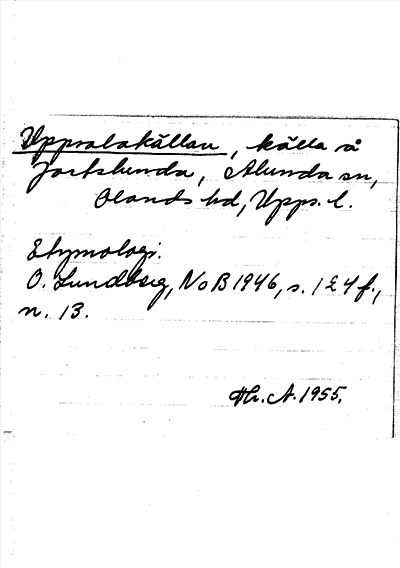 Uppsalakällan, källa å
Jortslunda, Alunda sn,
Olands hd, Upps. l.
Etymologi.
O. Lundberg, NoB 1946, s. 124 f.,
n. 13.
Hr. A. 1955.